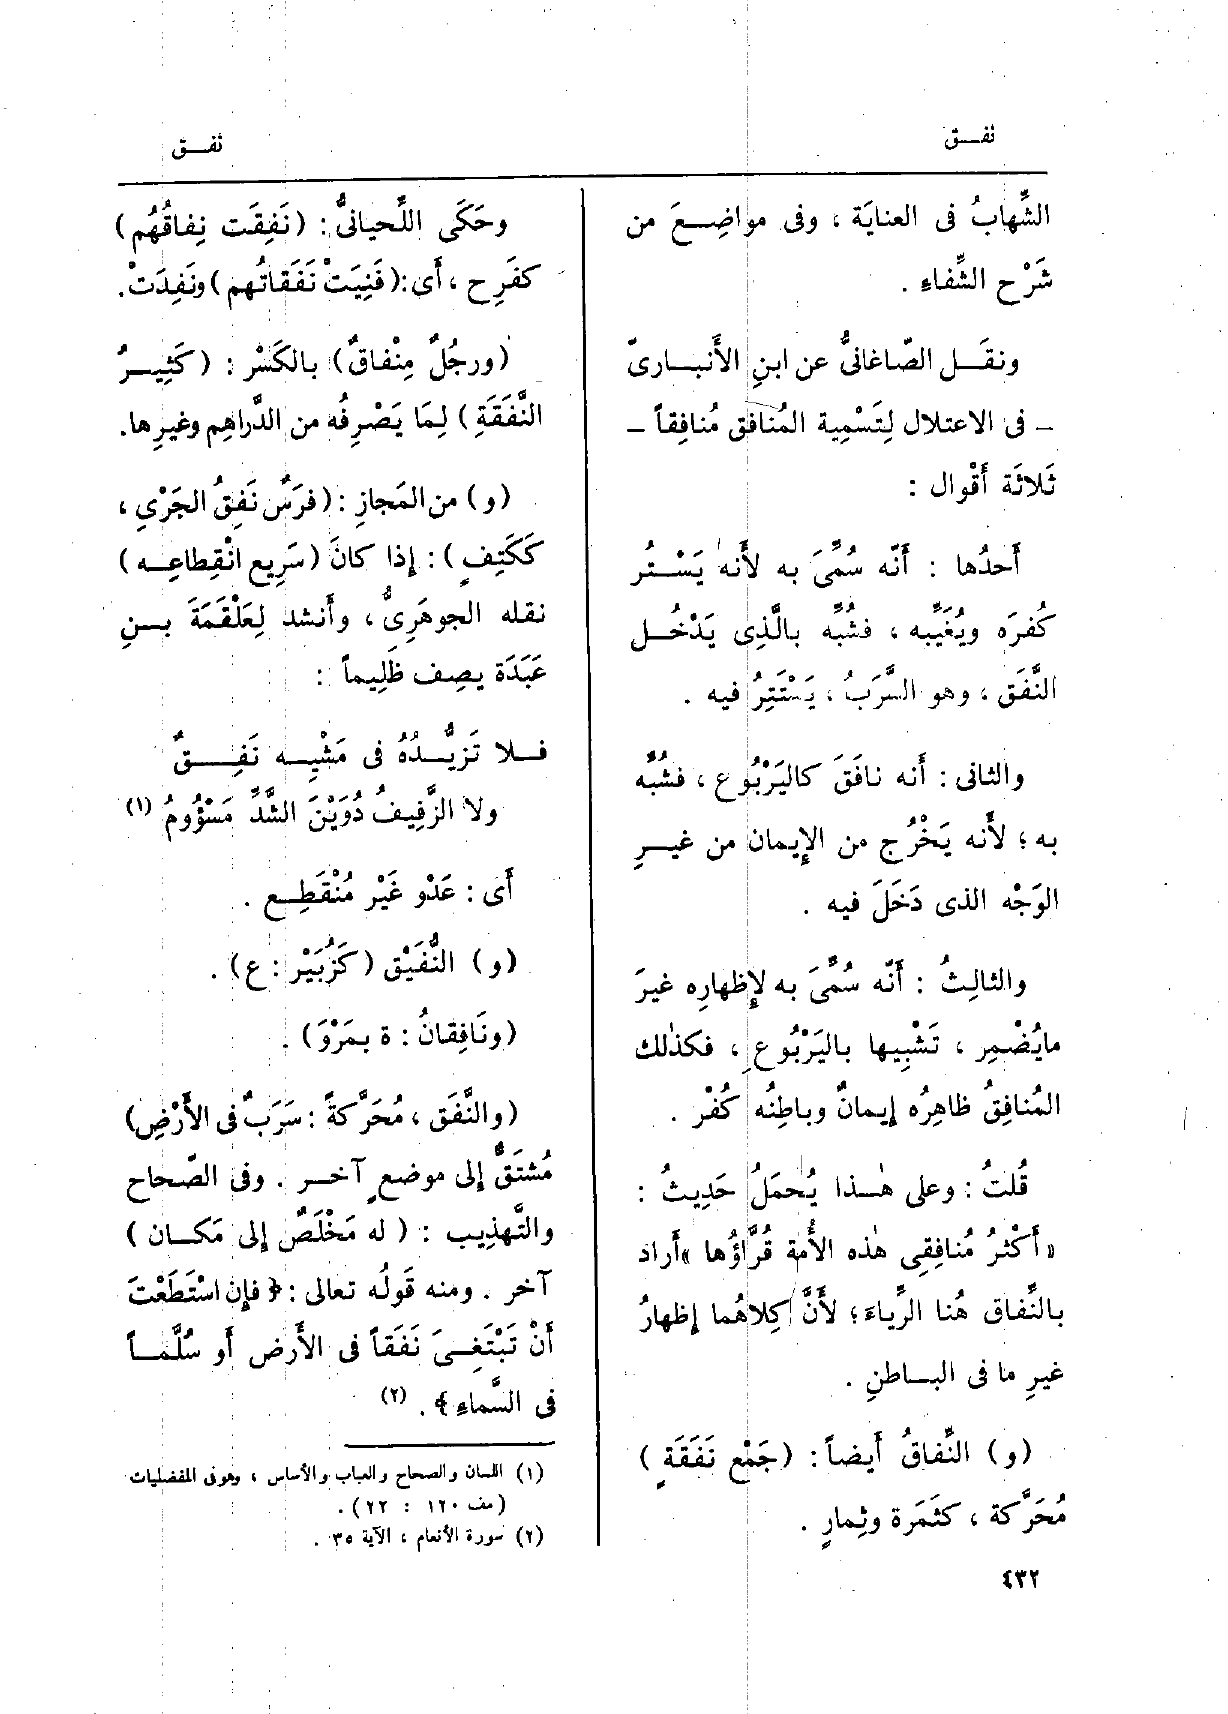 نفـق
نفـق
الشِّهابُ فى العنايَة ، وفى مواضِعَ من
شَرْح الشِّفاءِ .
ونقَـل الصّاغانىُّ عن ابنِ الأَنبـارىّ
ـ فى الاعتلال لِتَسْمِية المُنافق مُنافِقاً ـ
ثَلاثَة أَقْوال :
أَحدُها : أَنّه سُمِّىَ به لأَنه يَسْتُـر
كُفرَه ويُغَيِّبه ، فشُبِّه بالَّذِى يَدْخُـل
النَّفَق ، وهو السَّرَبُ ، يَسْتَتِرُ فيه .
والثانى : أَنه نافَقَ كاليَرْبُوع ، فشُبِّه
به ؛ لأَنه يَخْرُج من الإِيمان من غيـرِ
الوَجْه الذى دَخَلَ فيه .
والثالِثُ : أَنّه سُمِّىَ به لإِظهارِه غيرَ
مايُضْمِر ، تَشْبِيها باليَرْبُوعِ ، فكذٰلك
المُنافِقُ ظاهِرُه إِيمانٌ وباطِنُه كُفْر .
قُلتُ : وعلى هٰـذا يُحمَلُ حَدِيثُ :
«أَكْثرُ مُنافِقِى هٰذه الأُمة قُرَّاؤُها » أَراد
بالنِّفاق هُنا الرِّياءَ ؛ لأَنَّ كِلاهُما إِظهارُ
غيرِ ما فى البـاطنِ .
(و) النِّفاقُ أَيضاً : (جَمْع نَفَقَةٍ )
مُحَرَّكة ، كثَمَرة وثِمارٍ .
٤٣٢
وحَكَى اللِّحيانىُّ : (نَفِقَت نِفاقُهُم)
كفَرِح ، أَى : (فَنِيَتْ نَفَقَاتُهم) ونَفِدَتْ .
(ورجُلٌ مِنْفاقٌ) بالكَسْر : (كَثِيـرُ
النَّفَقَةِ ) لِمَا يَصْرِفُه من الدَّراهِم وغيرِها .
(و) من المَجازِ : (فرَسٌ نَفِقُ الجَرْىِ ،
ككَتِفٍ ) : إِذا كانَ (سَرِيع انْقِطاعِـه )
نقله الجوهَرِىُّ ، وأَنشد لِعَلْقَمَةَ بـنِ
عَبَدَة يصِف ظَلِيماً :
فـلا تَزيُّـدُهُ فى مَشْيِـه نَفِـقٌ
ولا الزَّفِيفُ دُوَيْنَ الشَّدِّ مَسْؤُومُ (١)
أَى : عَدْو غَيْر مُنْقَطِـع .
(و) النُّفَيْق (كزُبَيْر : ع) .
(ونَافِقانُ : ة بمَرْوَ) .
(والنَّفَق ، مُحَرَّكةً : سَرَبٌ فى الأَرْضِ)
مُشتَقٌّ إِلى موضعٍ آخـر . وفى الصّحاح
والتَّهذِيب : ( له مَخْلَصٌ إِلى مَكـان )
آخر . ومنه قَولُه تعالى : ﴿ فإِن اسْتَطَعْتَ
أَنْ تَبْتَغِـىَ نَفَقاً فى الأَرض أَو سُلَّمـاً
فى السَّماءِ ﴾ . (٢)
(١) اللسان والصحاح والعباب والأساس ، وهوفى المفضليات
(مف ١٢٠ : ٢٢) .
(٢) سورة الأنعام ، الآية ٣٥ .